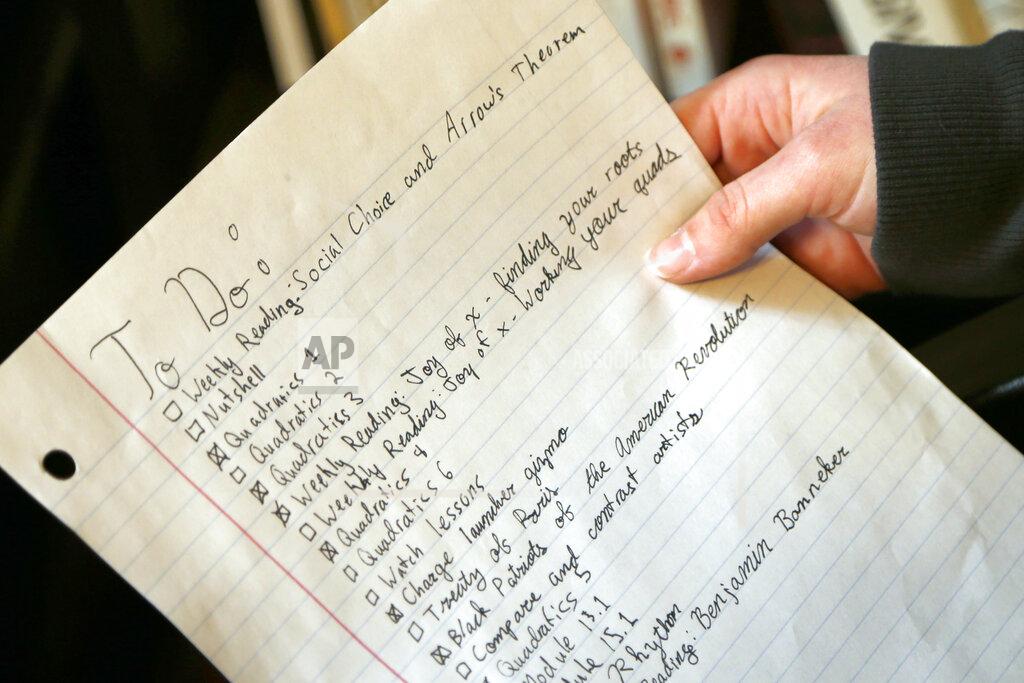 To Do:
☐ Weekly Reading: Social Choice and Arrow's Theorem
☐ Nutshell
☒ Quadratics 1
☐ Quadratics 2
☒ Quadratiss 3
☒ Weekly Reading: Joy of x - finding your roots
☐ Weekly Reading: Joy of x - working your quads
☒ Quadratics 4
☐ Quadratics 6
☐ Watch lessons
☒ Charge launcher gizmo
☐ Treaty of Paris
☒ Black Patriots of the American Revolution
☐ Compare and contrast artists
Quadratics 5
Module 13.1
15.1
Rhythm
Reading: Benjamin Banneker
AP
ASSOCIATED